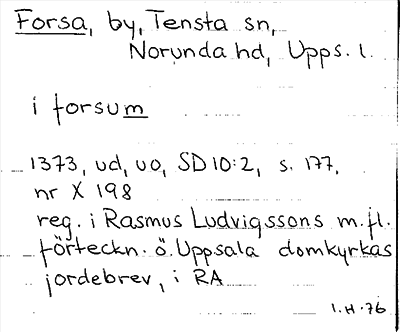 Forsa, by, Tensta sn,
Norunda hd, Upps. l.
i forsum
1373, ud, uo, SD 10:2, s. 177,
nr X 198
reg. i Rasmus Ludvigssons m.fl.
förteckn. ö. Uppsala domkyrkas
jordebrev, i RA
I.H.76